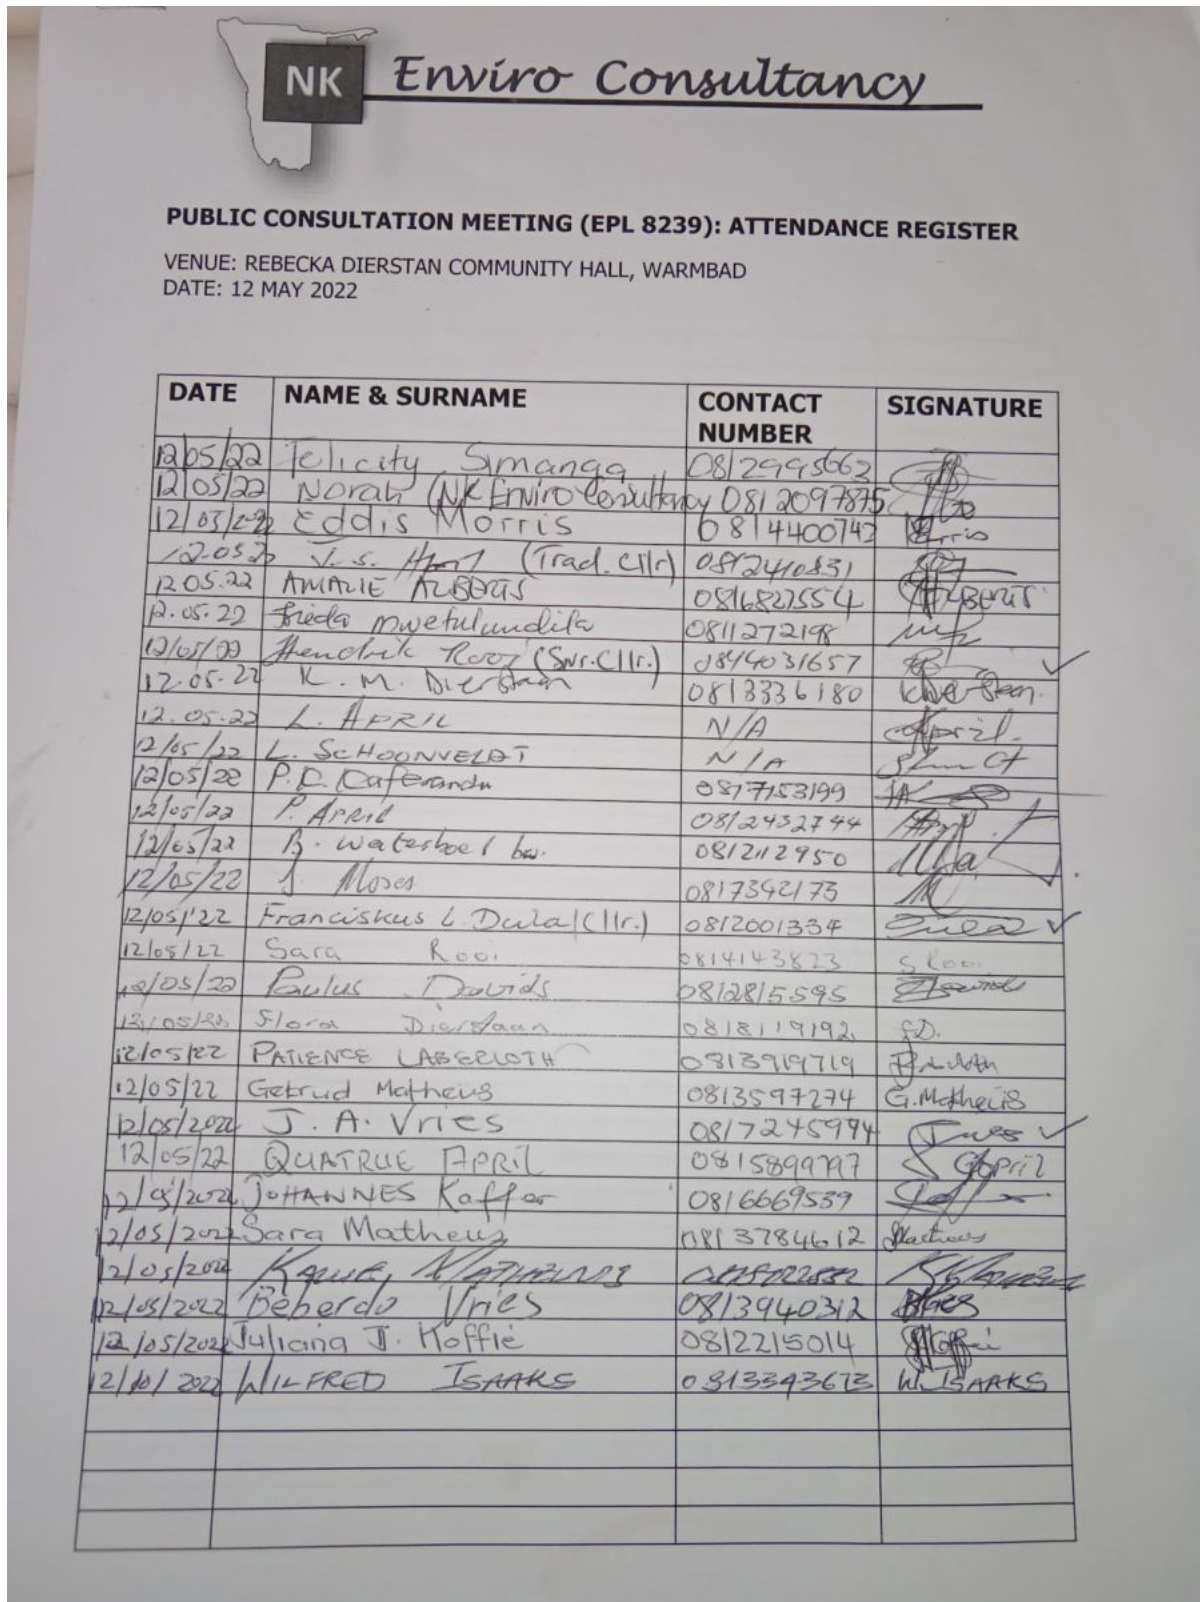 NK Enviro Consultancy
PUBLIC CONSULTATION MEETING (EPL 8239): ATTENDANCE REGISTER
VENUE: REBECKA DIERSTAN COMMUNITY HALL, WARMBAD
DATE: 12 MAY 2022
DATE NAME & SURNAME CONTACT NUMBER SIGNATURE
12/05/22 Felicity Simanga 0812995663
12/05/22 Norah (NK Enviro Consultancy 0812097875
12/05/22 Eddis Morris 0814400742
12.05.22 (Trad. Cllr) 0812410831
12.05.22 AMALIE ALBERTS 0816827554 ALBERTS
12.05.22 Frieda 0811272198
12/05/22 Hendrik Rooi (Snr. Cllr.) 0814031657
12.05.22 K. M. Dierstaan 0813336180
12.05.22 L. APRIL N/A April.
12/05/22 L. SCHOONVELDT N/A
12/05/22 P.C. 0817153199
12/05/22 P. APRIL 0812432744
12/05/22 B. 0812112950
12/05/22 J. Moses 0817392173
12/05/'22 Franciskus L. (Cllr.) 0812001334
12/05/22 Sara Rooi 0814143823 S Rooi
12/05/22 Paulus Davids 0812815595 Davids
12/05/22 Flora Dierstaan 0818119192 F.D.
12/05/22 PATIENCE LABERLOTH 0813919719
12/05/22 Getrud Matheus 0813597274 G. Matheus
12/05/2022 J. A. Vries 0817245994 Vries
12/05/22 QUATRUE APRIL 0815899797 April
12/05/2022 JOHANNES Kaffer 0816669539
12/05/2022 Sara Matheus 0813784612 Matheus
12/05/2022
12/05/2022 Beberdo Vries 0813940312 Vries
12/05/2022 Juliana J. Koffie 0812215014 Koffie
12/10/2022 WILFRED ISAAKS 0813343673 W. ISAAKS